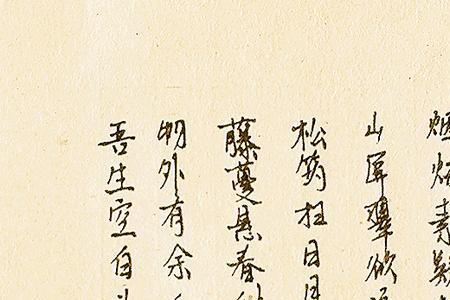 素
山屏翠欲
松筠拄日
藤蔓悬春
物外有余
吾生空自